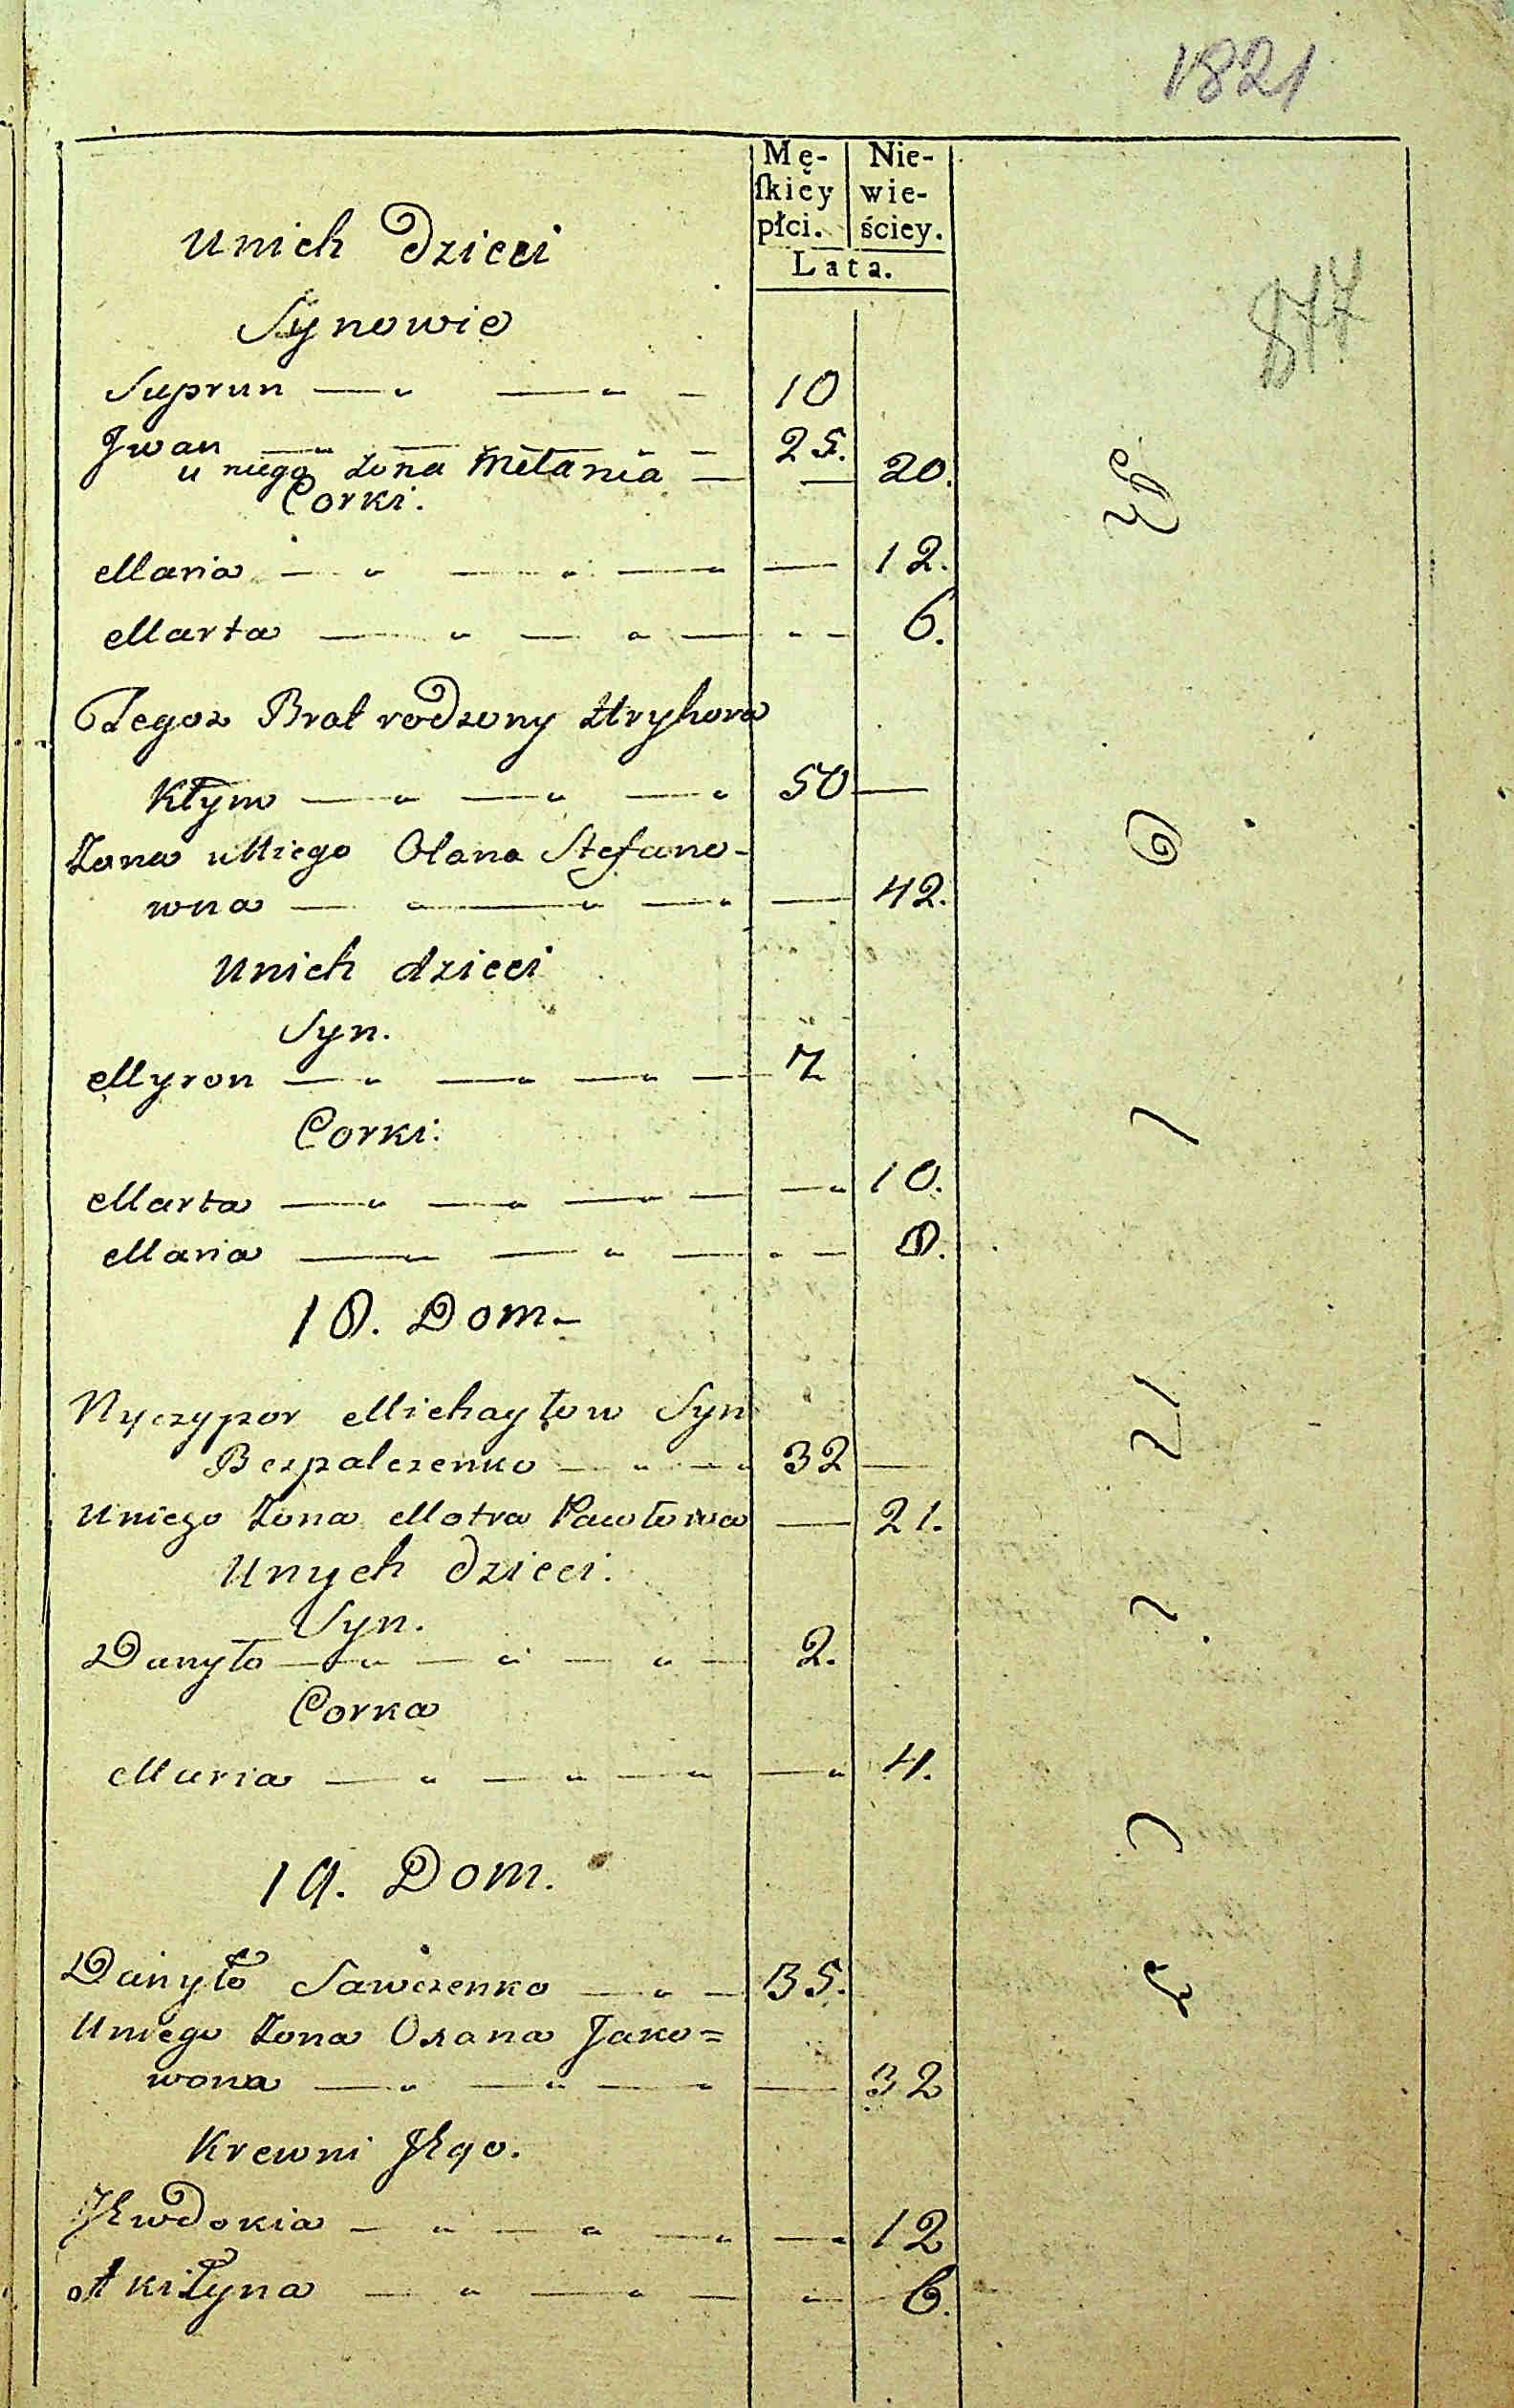 1821
Mę-
ſkiey
płci.
Nie-
wie-
ściey.
Lata.
877
Unich Dzieci
Synowie
Suprun 10
Jwan 25.
u niego żona Mełania 20.
Corki.
Maria 12.
Marta 6.
Tegoż Brat rodzony Hryhora
Kłym 50
Żona u Niego Olana Stefano-
wna 42.
Unich dzieci
Syn.
Myron 7
Corki:
Marta 10.
Maria 8.
18. Dom.
Nyczypor Michayłow Syn
Bezpalczenko 32
Uniego Żona Motra Pawłowa 21.
Unych dzieci.
Syn.
Danyło 2.
Corka
Maria 4.
19. Dom.
Danyło Sawczenko 35.
Uniego Żona Oxana Jako=
wona 32
Krewni Jego.
Jewdokia 12
Akiłyna 6.